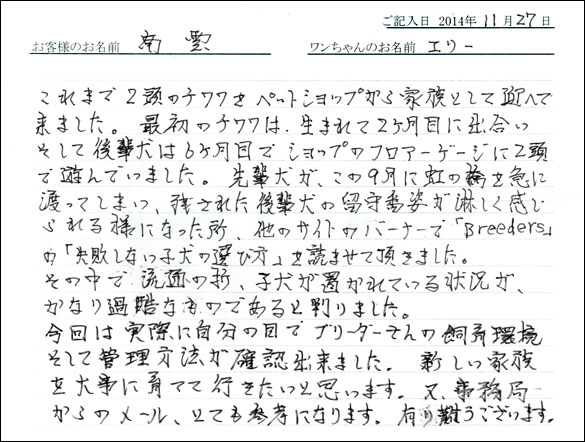 ご記入日 2014年 11月27日
お客様のお名前 南 雲 ワンちゃんのお名前 エリー
これまで2頭のチワワをペットショップから家族として迎へて
来ました。最初のチワワは、生まれて2ケ月目に出合い
そして後輩犬は6ケ月目でショップのフロアーゲージに2頭
で遊んでいました。先輩犬が、この9月に虹の橋を急に
渡ってしまい、残された後輩犬の留守番姿が淋しく感じ
られる様になった所、他のサイトのバーナーで「Breeders」
の「失敗しない子犬の選び方」を読ませて頂きました。
その中で流通の折、子犬が置かれている状況が、
かなり過酷なものであると判りました。
今回は実際に自分の目でブリーダーさんの飼育環境
そして管理方法が確認出来ました。新しい家族
を大事に育てて行きたいと思います。又、事務局
からのメール、とても参考になります。有り難うございます。